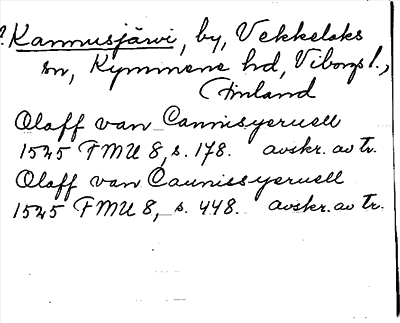 ?Kannusjärvi, by, Vekkelaks
sn, Kymmene hd, Viborgs l.,
Finland
Olaff van Cannisyeruell
1525 FMU 8, s. 178. avskr. av tr.
Olaff van Caunissyeruell
1525 FMU 8, s. 448. avskr. av tr.